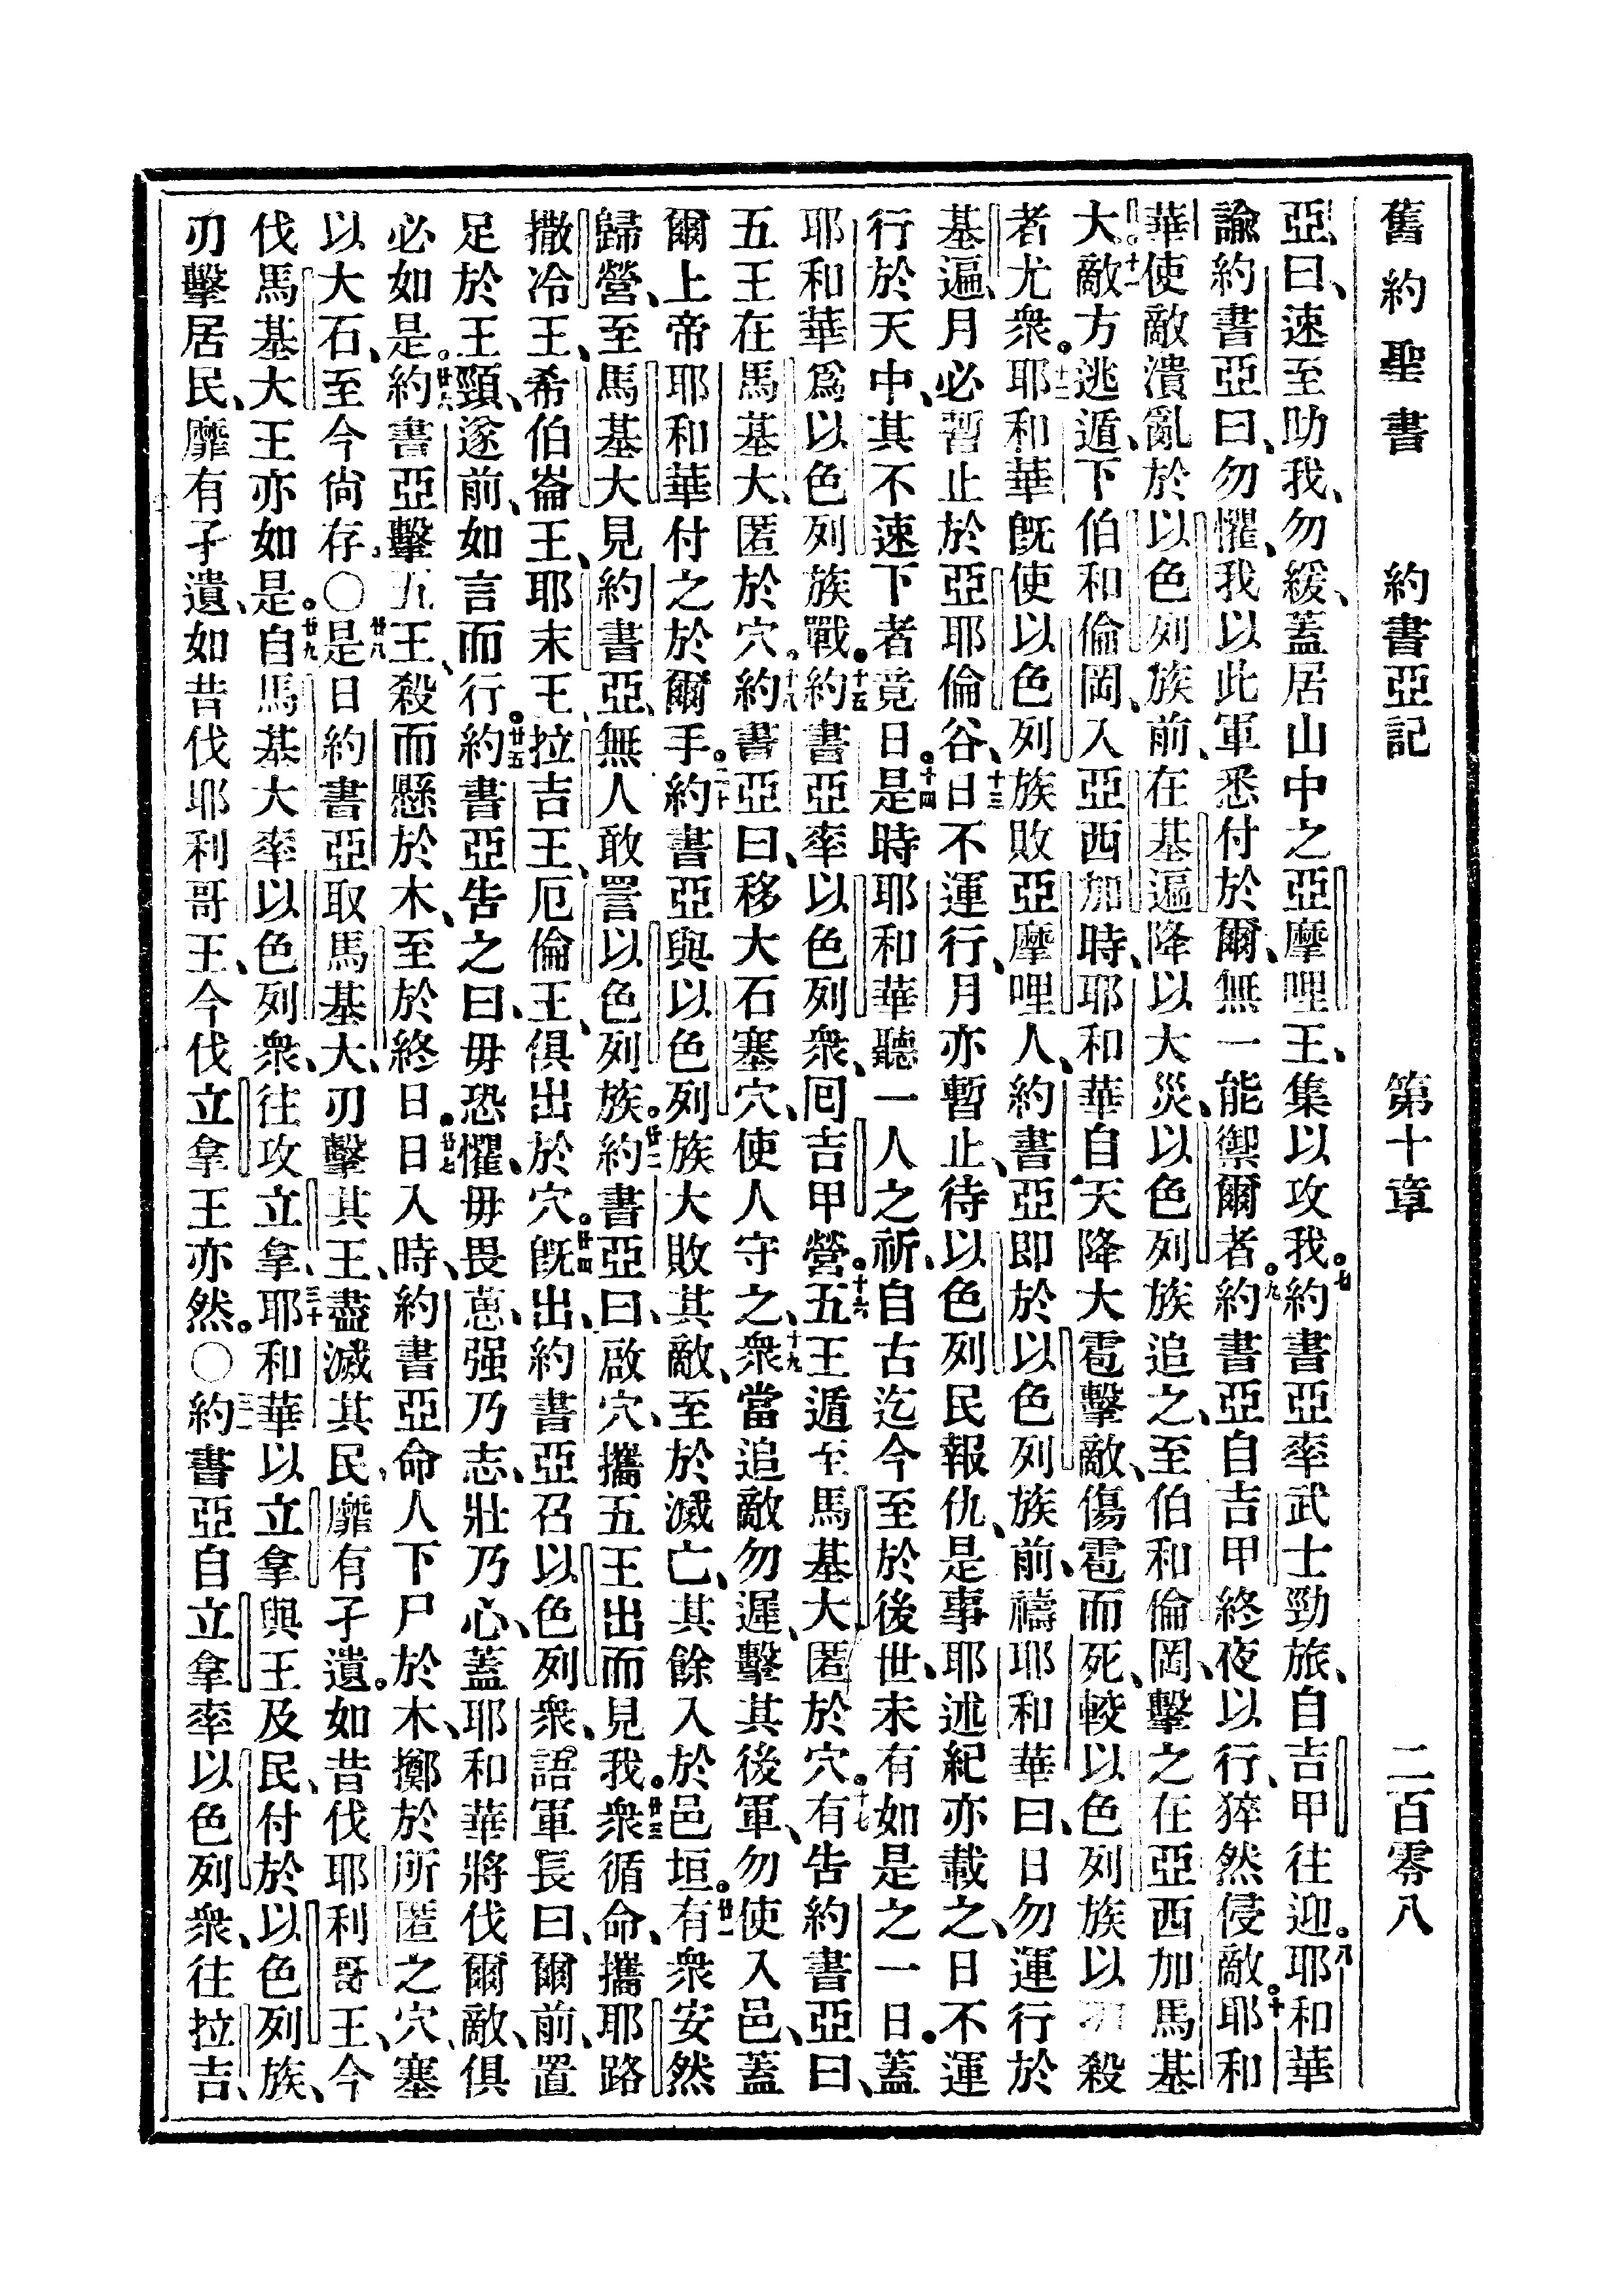 舊約聖書 約書亞記 第十章 二百零八
亞、曰、速至助我、勿緩、蓋居山中之亞摩哩王、集以攻我。七約書亞率武士勁旅、自吉甲往迎。八耶和華
諭約書亞曰、勿懼、我以此軍悉付於爾、無一能禦爾者。九約書亞自吉甲終夜以行、猝然侵敵。十耶和
華使敵潰亂於以色列族前、在基遍降以大災、以色列族追之、至伯和倫岡、擊之在亞西加馬基
大。十一敵方逃遁、下伯和倫岡、入亞西加時、耶和華自天降大雹擊敵、傷雹而死、較以色列族以刃殺
者尤衆。十二耶和華旣使以色列族敗亞摩哩人、約書亞卽於以色列族前、禱耶和華曰、日勿運行於
基遍、月必暫止於亞耶倫谷、十三日不運行、月亦暫止、待以色列民報仇、是事耶述紀亦載之、日不運
行於天中、其不速下者竟日。十四是時耶和華聽一人之祈、自古迄今至於後世、未有如是之一日。蓋
耶和華爲以色列族戰。十五約書亞率以色列衆、囘吉甲營。十六五王遁至馬基大、匿於穴。十七有告約書亞曰、
五王在馬基大、匿於穴。十八約書亞曰、移大石塞穴、使人守之、十九衆當追敵勿遲、擊其後軍、勿使入邑、蓋
爾上帝耶和華付之於爾手。二十約書亞與以色列族大敗其敵、至於滅亡、其餘入於邑垣。廿一有衆安然
歸營、至馬基大見約書亞、無人敢詈以色列族。廿二約書亞曰、啟穴、攜五王出而見我。廿三衆循命、攜耶路
撒冷王、希伯崙王、耶末王、拉吉王、厄倫王、俱出於穴。廿四旣出、約書亞召以色列衆、語軍長曰、爾前、置
足於王頸、遂前、如言而行。廿五約書亞告之曰、毋恐懼、毋畏葸、强乃志、壯乃心、蓋耶和華將伐爾敵、俱
必如是。廿六約書亞擊五王、殺而懸於木、至於終日。廿七日入時、約書亞命人下尸於木、擲於所匿之穴、塞
以大石、至今尙存。〇廿八是日約書亞取馬基大、刃擊其王、盡滅其民、靡有孑遺。如昔伐耶利哥王、今
伐馬基大王亦如是。廿九自馬基大率以色列衆、往攻立拿、三十耶和華以立拿與王及民、付於以色列族、
刃擊居民、靡有孑遺、如昔伐耶利哥王、今伐立拿王亦然。〇三一約書亞自立拿率以色列衆、往拉吉、